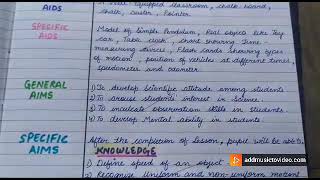 AIDS
chalk, duster, Pointer.
SPECIFIC
AIDS
Model of Simple Pendulum, Real objects like Toy
car, Table clock, chart showing Time
measuring devices, Flash cards showing types
of motion, position of vehicles at different times,
speedometer and odometer
GENERAL
AIMS
1) To develop Scientific attitude among students
2) To arouse students interest in Science.
3) To inculcate observation skills in students
4) To develop Mental ability in students
SPECIFIC
AIMS
After the completion of lesson, pupil will be able to
KNOWLEDGE
1) Define speed of an object
2) Recognise Uniform and non-uniform motion
addmusictovideo.com